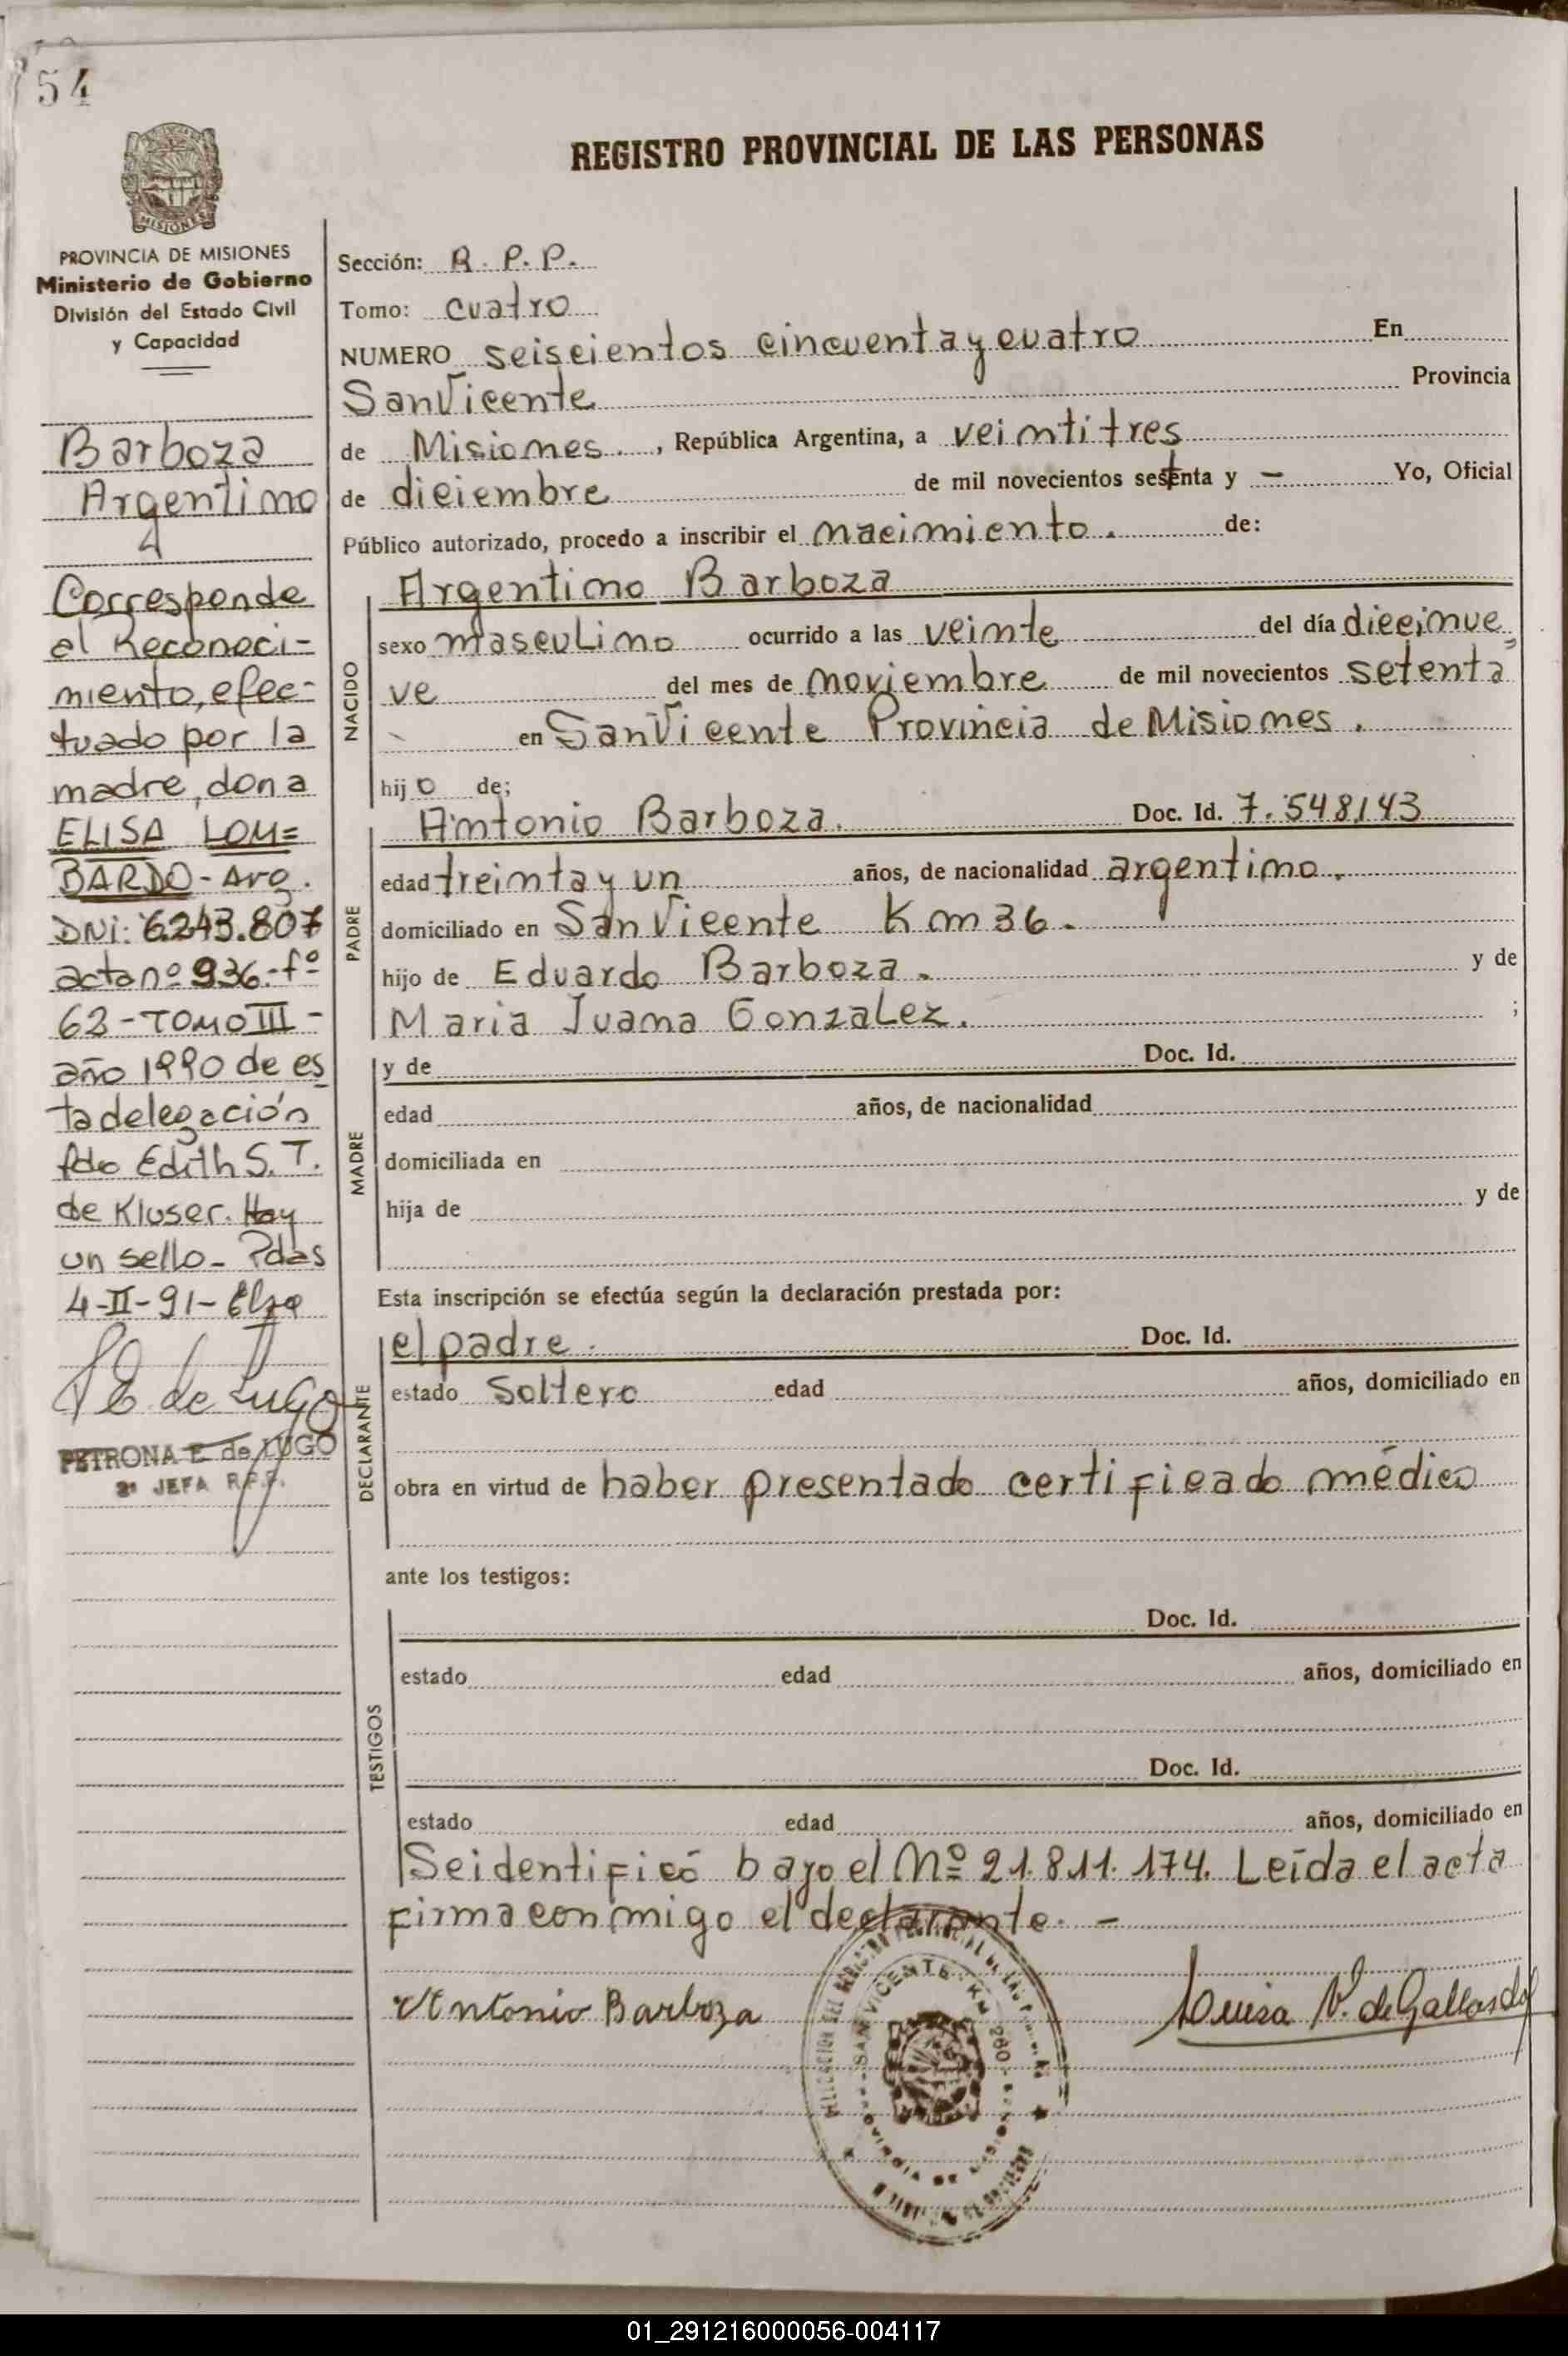 54
MISIONES
PROVINCIA DE MISIONES
Ministerio de Gobierno
División del Estado Civil
y Capacidad
Barboza
Argentino
Corresponde
el Reconoci-
miento, efec-
tuado por la
madre, doña
ELISA LOM=
BARDO - Arg.
DNI: 6.243.807
acta nº 936.-fº
62 - TOMO III -
año 1990 de es
ta delegación
fdo Edith S. T.
de Kluser. Hay
un sello - Pdas
4-II-91-
de Lugo
PETRONA E de LUGO
2ª JEFA R.P.P.
REGISTRO PROVINCIAL DE LAS PERSONAS
Sección: R. P. P.
Tomo: cuatro
NUMERO seiscientos cincuenta y cuatro En
San Vicente Provincia
de Misiones., República Argentina, a veintitres
de diciembre de mil novecientos setenta y — Yo, Oficial
Público autorizado, procedo a inscribir el nacimiento. de:
NACIDO
Argentino Barboza
sexo masculino ocurrido a las veinte del día diecinue
ve del mes de noviembre de mil novecientos setenta
- en San Vicente Provincia de Misiones.
hijo de;
PADRE
Antonio Barboza. Doc. Id. 7.548143
edad treinta y un años, de nacionalidad argentino.
domiciliado en San Vicente Km 36.
hijo de Eduardo Barboza. y de
Maria Juana Gonzalez. ;
MADRE
y de Doc. Id.
edad años, de nacionalidad
domiciliada en
hija de y de
Esta inscripción se efectúa según la declaración prestada por:
DECLARANTE
el padre. Doc. Id.
estado Soltero edad años, domiciliado en
obra en virtud de haber presentado certificado médico
ante los testigos:
TESTIGOS
Doc. Id.
estado edad años, domiciliado en
Doc. Id.
estado edad años, domiciliado en
Se identificó bajo el Nº 21.811.174. Leída el acta
firma conmigo el declarante. -
Antonio Barboza
Luisa V. de Gallardo
SAN VICENTE - KM 280
01_291216000056-004117